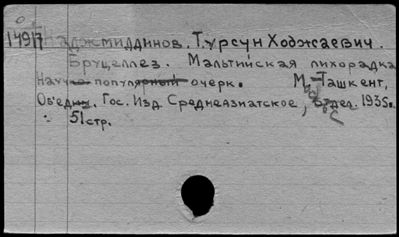 14917 Наджмиддинов. Турсун Ходжаевич.
Бруцеллез. Мальтийская лихорадка
Научно популярный очерк. М-Ташкент,
Об'един. Гос. Изд. Среднеазиатское, отдел. 1935г.
51 стр.